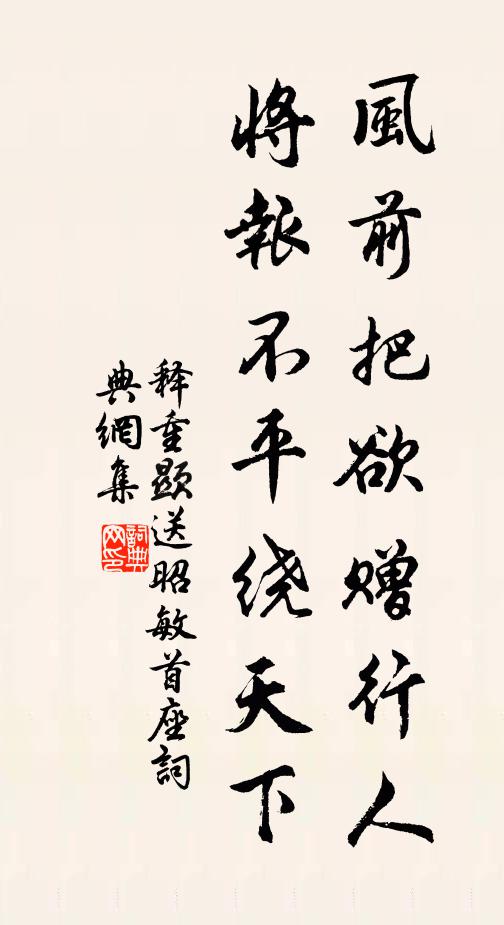 風前把欲贈行人
將報不平繞天下
释重顯送昭敏首座詞
典網集
詞典網印